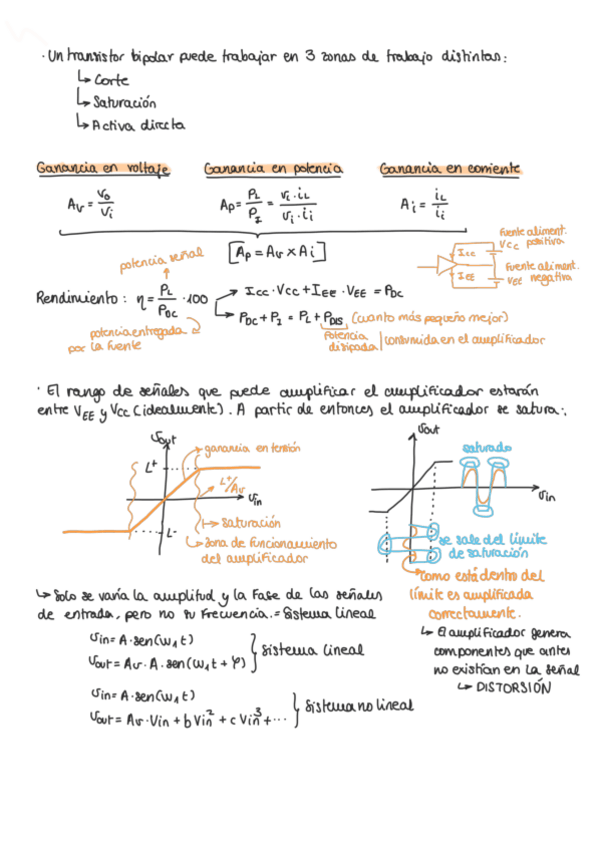 · Un transistor bipolar puede trabajar en 3 zonas de trabajo distintas:
↳ Corte
↳ Saturación
↳ Activa directa
Ganancia en voltaje
Ganancia en potencia
Ganancia en corriente
Av = vo/vi
Ap = PL/PI = vL·iL/vi·ii
Ai = iL/ii
[Ap = Av x Ai]
Fuente aliment. positiva
Vcc
Icc
IEE
Fuente aliment. negativa
VEE
potencia señal
Rendimiento: η = PL/PDC · 100
→ Icc · Vcc + IEE · VEE = PDC
↳ PDC + PI = PL + PDIS (cuanto más pequeño mejor)
potencia entregada por la fuente
Potencia disipada | consumida en el amplificador
· El rango de señales que puede amplificar el amplificador estarán
entre VEE y Vcc (idealmente). A partir de entonces el amplificador se satura:
vout
L+
ganancia en tensión
L+/Av
vin
L-
↳ saturación
↳ zona de funcionamiento
del amplificador
vout
saturado
vin
se sale del límite
de saturación
como está dentro del
límite es amplificada
correctamente.
↳ Solo se varía la amplitud y la fase de las señales
de entrada, pero no su frecuencia. = Sistema lineal
vin = A·sen(w1t)
vout = Av·A·sen(w1t + φ)
} Sistema lineal
vin = A·sen(w1t)
vout = Av·Vin + bVin² + cVin³ + ...
} Sistema no lineal
↳ El amplificador genera
componentes que antes
no existían en la señal
↳ DISTORSIÓN